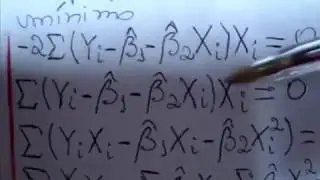 mínimo
-2Σ(Yi-β̂1-β̂2Xi)Xi=0
Σ(Yi-β̂1-β̂2Xi)Xi=0
Σ(YiXi-β̂1Xi-β̂2Xi²)=